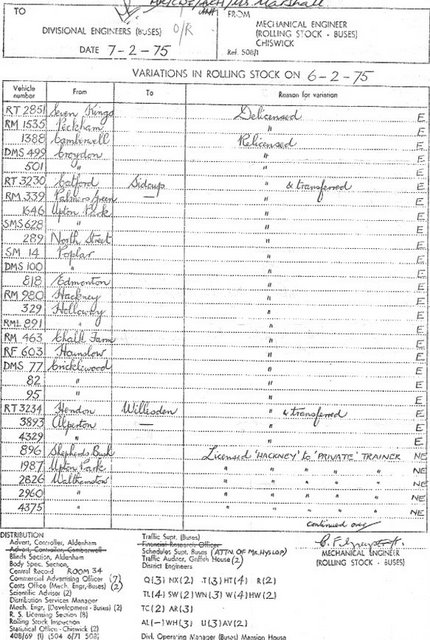 TO
DIVISIONAL ENGINEERS (BUSES) O/R
DATE 7-2-75
FROM
MECHANICAL ENGINEER
(ROLLING STOCK - BUSES)
CHISWICK
Ref. 508/1
VARIATIONS IN ROLLING STOCK ON 6-2-75
Vehicle number From To Reason for variation
RT 2851 Seven Kings Delicensed E
RM 1535 Peckham " E
1388 Camberwell Relicensed E
DMS 499 Croydon " E
501 " " E
RT 3230 Catford Sidcup " & transferred E
RM 339 Palmers Green — " E
1646 Upton Park " E
SMS 628 " " E
289 North Street " E
SM 14 Poplar " E
DMS 100 " " E
818 Edmonton " E
RM 980 Hackney " E
329 Holloway " E
RML 891 " " E
RM 463 Chalk Farm " E
RF 603 Hounslow " E
DMS 77 Cricklewood " E
82 " " E
95 " " E
RT 3234 Hendon Willesden " & transferred E
3893 Alperton — " E
4329 " " E
896 Shepherds Bush Licensed 'HACKNEY' to 'PRIVATE' TRAINER NE
1987 Upton Park " " " " NE
2826 Walthamstow " " " " NE
2960 " " " " " NE
4375 " " " " " NE
continued over
DISTRIBUTION
Advert. Controller, Aldenham
Advert. Controller, Camberwell
Blinds Section, Aldenham
Body Spec. Section,
Central Record ROOM 34
Commercial Advertising Officer (7)
Costs Office (Mech. Engr. Buses) (2)
Scientific Adviser (2)
Distribution Services Manager
Mech. Engr. (Development - Buses) (2)
R. S. Licensing Section (8)
Rolling Stock Inspection
Statistical Office - Chiswick (2)
408/69 (1) (504 6/71 508)
Traffic Supt. (Buses)
Financial Research Officer
Schedules Supt. Buses (ATTN. OF MR. HYSLOP)
Traffic Auditor, Griffith House (2)
District Engineers
Q(3) NX(2) T(3) HT(4) R(2)
TL(4) SW(2) WN(3) W(4) HW(2)
TC(2) AR(3)
AL(-) WH(3) U(3) AV(2)
Divl. Operating Manager (Buses) Mansion House
MECHANICAL ENGINEER
(ROLLING STOCK - BUSES)